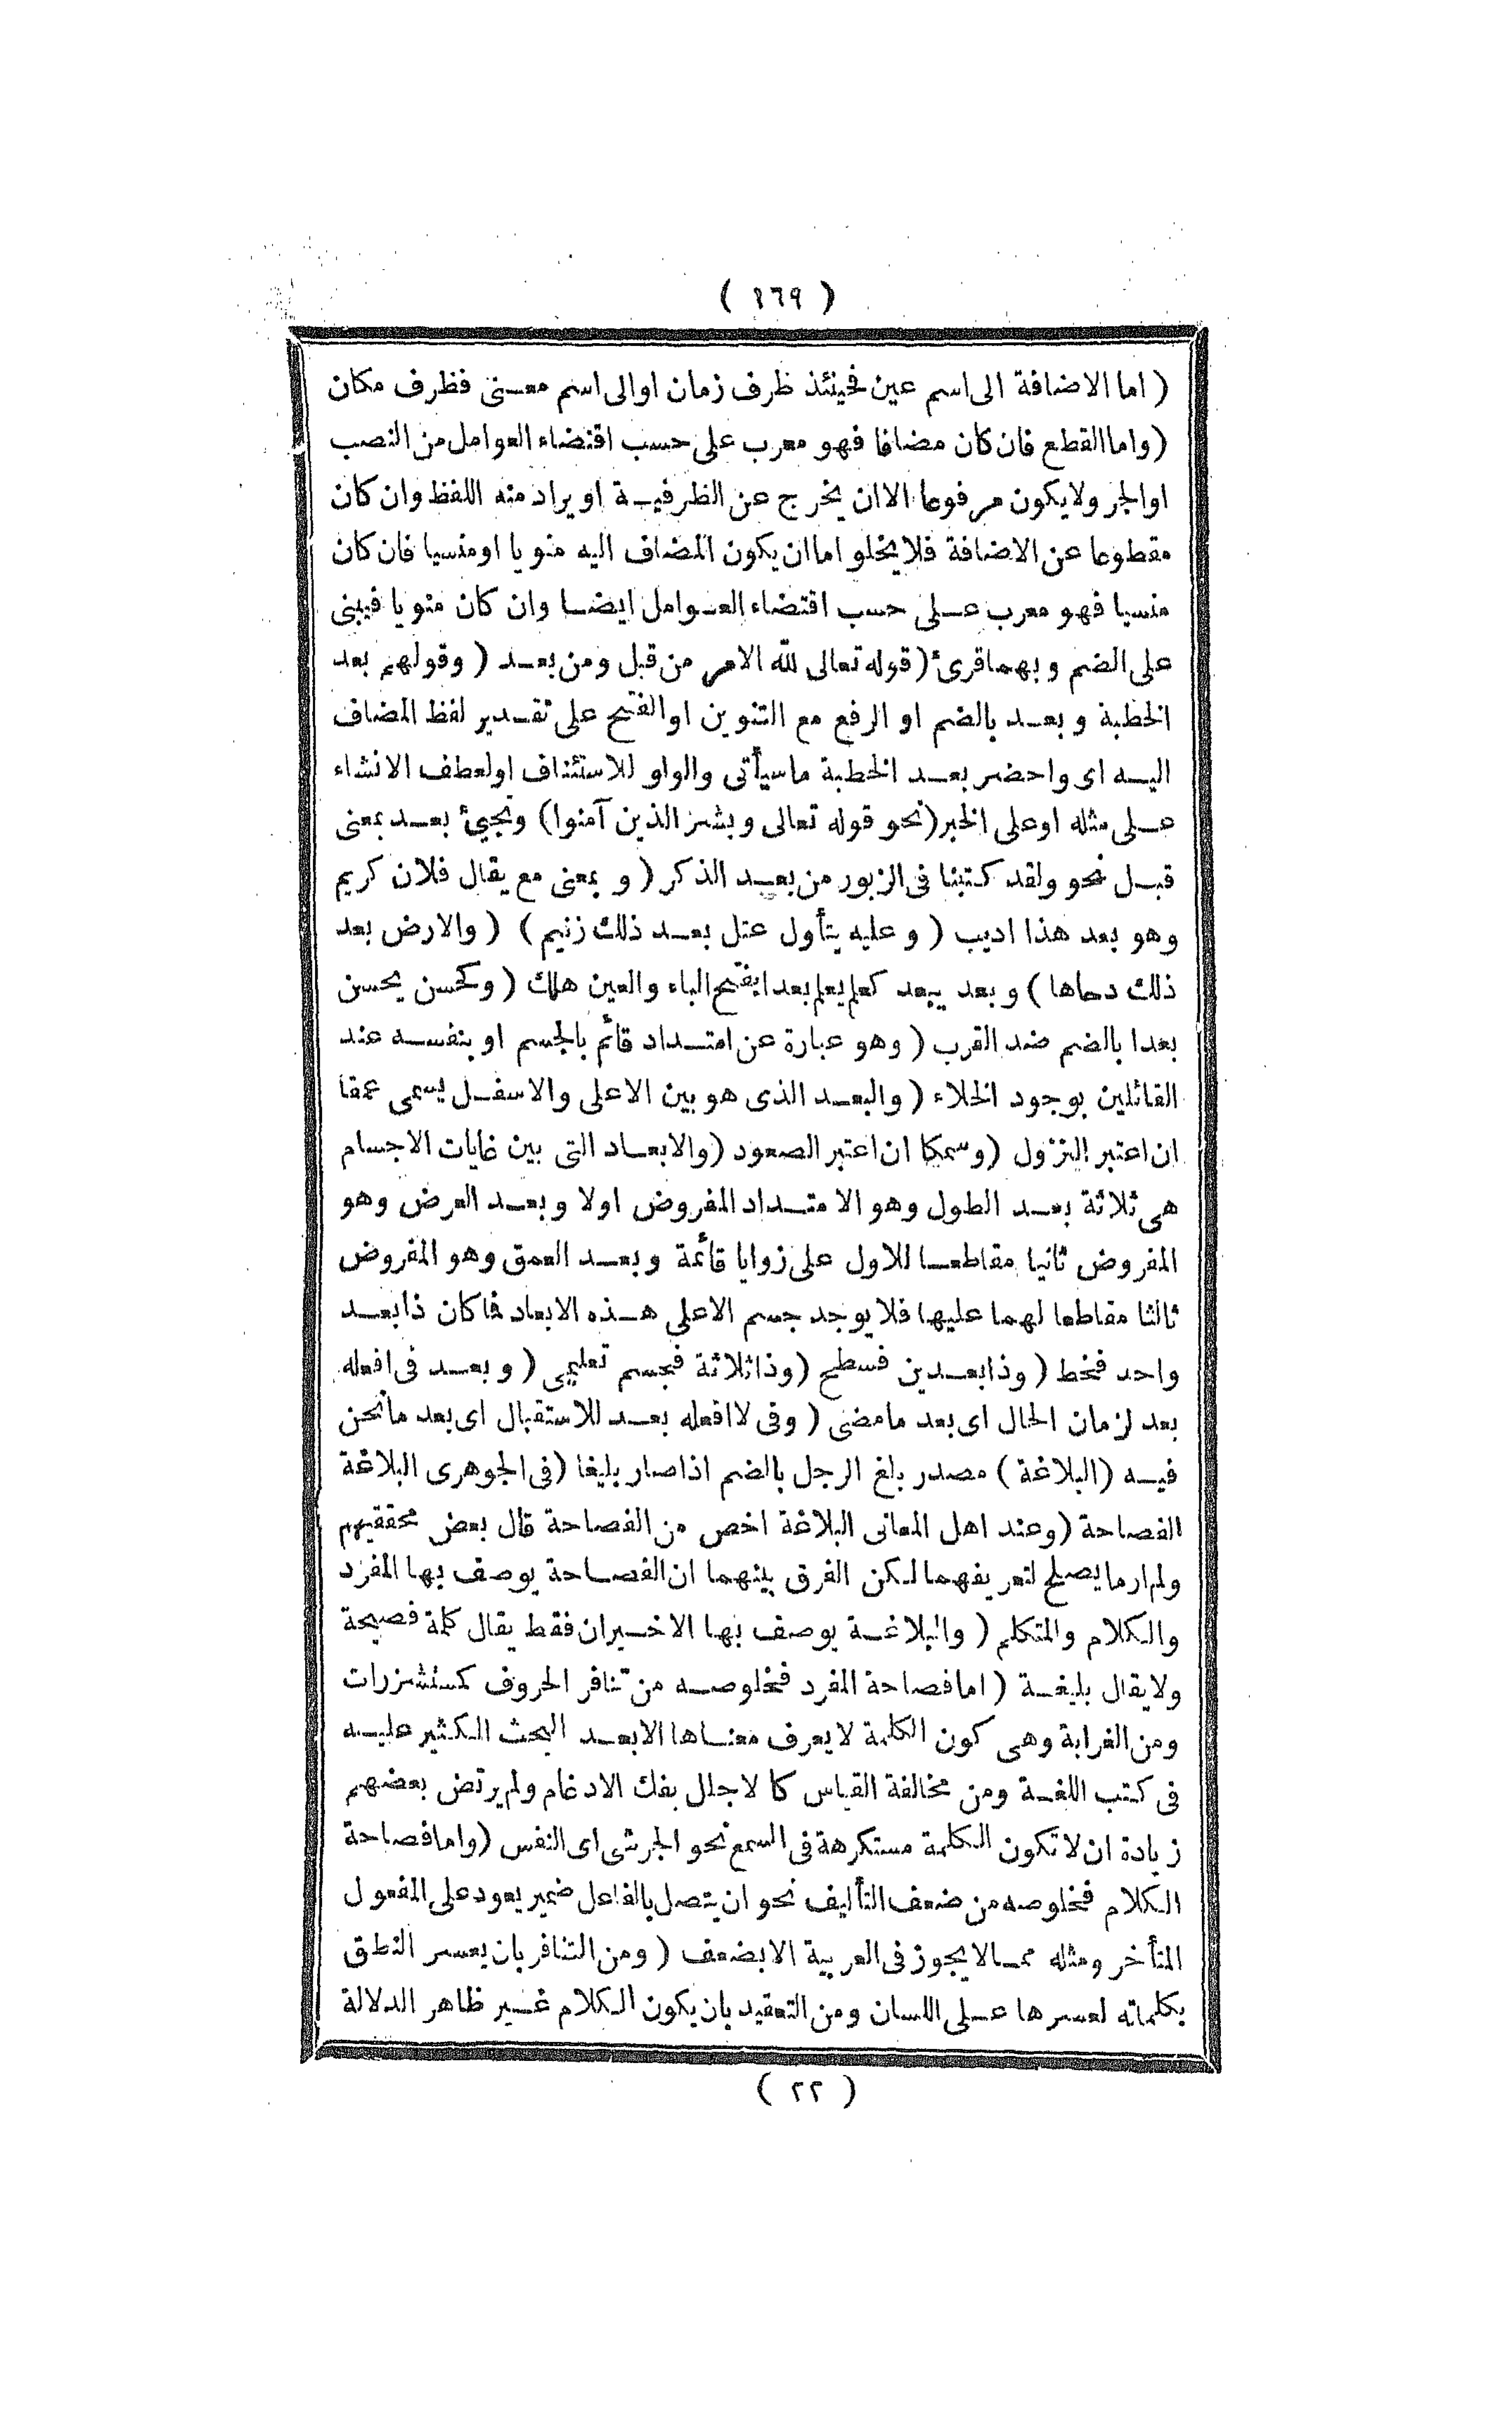 ( ١٦٩ )
( اما الاضافة الى اسم عين فحينئذ ظرف زمان اوالى اسم معنى فظرف مكان
( واما القطع فان كان مضافا فهو معرب على حسب اقتضاء العوامل من النصب
اوالجر ولايكون مرفوعا الاان يخرج عن الظرفية او يراد منه اللفظ وان كان
مقطوعا عن الاضافة فلايخلو اما ان يكون المضاف اليه منويا اومنسيا فان كان
منسيا فهو معرب على حسب اقتضاء العوامل ايضا وان كان منويا فيبنى
على الضم وبهما قرئ ( قوله تعالى لله الامر من قبل ومن بعد ( وقولهم بعد
الخطبة وبعد بالضم او الرفع مع التنوين اوالفتح على تقدير لفظ المضاف
اليه اى واحضر بعد الخطبة ماسيأتى والواو للاستئناف اولعطف الانشاء
على مثله اوعلى الخبر ( نحو قوله تعالى وبشر الذين آمنوا ) وتجيئ بعد بمعنى
قبل نحو ولقد كتبنا فى الزبور من بعد الذكر ( وبمعنى مع يقال فلان كريم
وهو بعد هذا اديب ( وعليه يتأول عتل بعد ذلك زنيم ) ( والارض بعد
ذلك دحاها ) وبعد يبعد كعلم يعلم بعدا بفتح الباء والعين هلك ( وكحسن يحسن
بعدا بالضم ضد القرب ( وهو عبارة عن امتداد قائم بالجسم او بنفسه عند
القائلين بوجود الخلاء ( والبعد الذى هو بين الاعلى والاسفل يسمى عمقا
ان اعتبر النزول ( وسمكا ان اعتبر الصعود ( والابعاد التى بين غايات الاجسام
هى ثلاثة بعد الطول وهو الامتداد المفروض اولا وبعد العرض وهو
المفروض ثانيا مقاطعا للاول على زوايا قائمة وبعد العمق وهو المفروض
ثالثا مقاطعا لهما عليها فلا يوجد جسم الاعلى هذه الابعاد فما كان ذابعد
واحد فخط ( وذابعدين فسطح ( وذاثلاثة فجسم تعليمى ( وبعد فى افعله
بعد لزمان الحال اى بعد مامضى ( وفى لاافعله بعد للاستقبال اى بعد مانحن
فيه ( البلاغة ) مصدر بلغ الرجل بالضم اذاصار بليغا ( فى الجوهرى البلاغة
الفصاحة ( وعند اهل المعانى البلاغة اخص من الفصاحة قال بعض محققيهم
ولم ارما يصلح لتعريفهما لكن الفرق بينهما ان الفصاحة يوصف بها المفرد
والكلام والمتكلم ( والبلاغة يوصف بها الاخيران فقط يقال كلمة فصيحة
ولايقال بليغة ( اما فصاحة المفرد فخلوصه من تنافر الحروف كمستشزرات
ومن الغرابة وهى كون الكلمة لايعرف معناها الابعد البحث الكثير عليه
فى كتب اللغة ومن مخالفة القياس كا لاجلل بفك الادغام ولم يرتض بعضهم
زيادة ان لاتكون الكلمة مستكرهة فى السمع نحو الجرشى اى النفس ( واما فصاحة
الكلام فخلوصه من ضعف التأليف نحو ان يتصل بالفاعل ضمير يعود على المفعول
المتأخر ومثله ممالايجوز فى العربية الابضعف ( ومن التنافر بان يعسر النطق
بكلماته لعسرها على اللسان ومن التعقيد بان يكون الكلام غير ظاهر الدلالة
( ٢٢ )